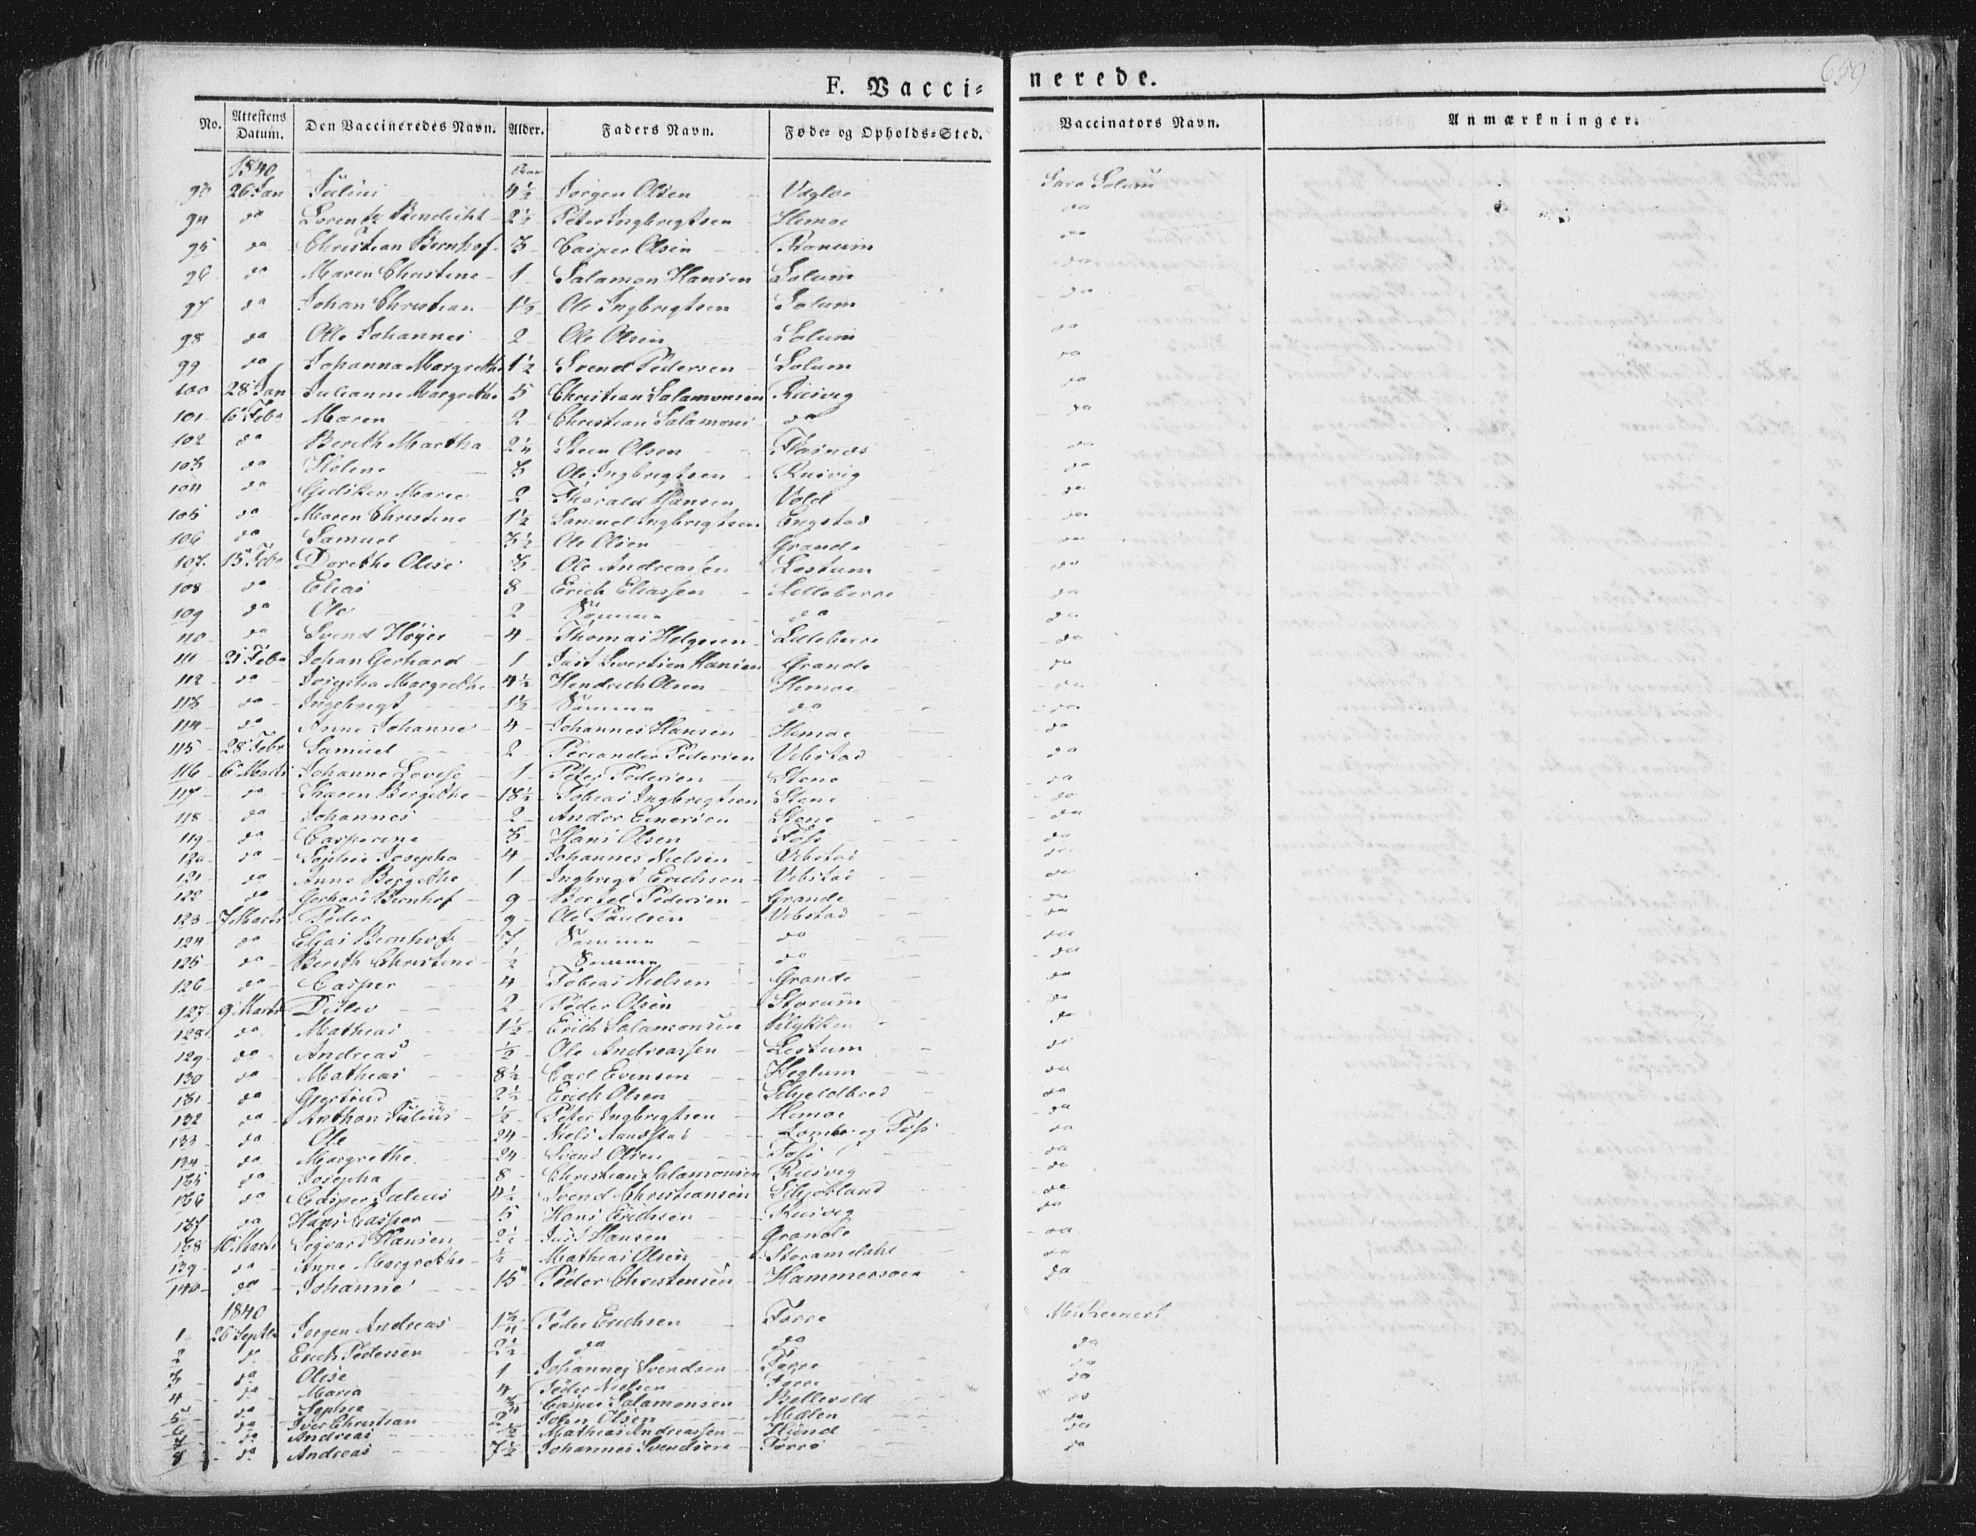 659
F. Vacci-nerede.
No. Attestens Datum. Den Vaccineredes Navn. Alder. Faders Navn. Føde- og Opholds-Sted. Vaccinators Navn. Anmærkninger.
1840
93 26 Jan Julius 4½ Jørgen Olsen Sara Solum
94 do Lorentz Bendicht 2½ Peter Ingbrigtsen Hemoe do
95 do Christian Bernhof 3 Casper Olsen Ranum do
96 do Maren Christine 1 Salamon Hansen Solum do
97 do Johan Christian 1½ Ole Ingbrigtsen Solum do
98 do Olle Johannes 2 Ole Olsen Solum do
99 do Johanna Margrethe 1½ Svend Pedersen Solum do
100 28 Jan Julianne Margrethe 5 Christian Salamonsen Rusvig do
101 6 Febr Maren 2 Christian Salamons do do
102 do Berith Martha 2¼ Steen Olsen Flasnæs do
103 do Helene 3 Ole Ingbrigtsen Rusvig do
104 do Gjedsken Marie 2 Tharald Hansen Vold do
105 do Maren Christine 1½ Samuel Ingbrigtsen Engstad do
106 do Samuel 3½ Ole Olsen Grande do
107 15 Febr Dorethe Olise 3 Ole Andreassen Lestum do
108 do Elias 8 Erich Eliassen Lilleberre do
109 do Ole 2 Samme do do
110 do Svend Høyer 4 Thomas Helgesen Lilleberre do
111 21 Febr Johan Gerhard 1 Just Sivertsen Hansen Grande do
112 do Josepha Margrethe 4½ Hendrich Olsen Hemoe do
113 do Ingebrigt 1½ Samme do do
114 do Anne Johanne 4 Johannes Hansen Hemoe do
115 28 Febr Samuel 2 Periander Pedersen Vibstad do
116 6 Marts Johanne Lovise 1 Peter Pedersen Stene do
117 do Karen Bergithe 18½ Tobias Ingbrigtsen Stene do
118 do Johannes 2 Andor Einersen Stene do
119 do Casperine 3 Hans Olsen Foss do
120 do Sophie Josepha 4 Johannes Nielsen Vibstad do
121 do Anne Bergethe 1 Ingbrigt Erichsen Vibstad do
122 do Gerhard Bernhof 9 Bertel Pedersen Grande do
123 7 Marts Peder 9 Ole Paulsen Vibstad do
124 do Elias Bernhof 7 Samme do do
125 do Berith Christine ½ Samme do do
126 do Casper 4 Tobias Nielsen Grande do
127 9 Marts Ditlev 2 Peder Olsen Storum do
128 do Mathias 1½ Erich Salamonsen do
129 do Andreas ½ Ole Andreassen Lestum do
130 do Mathias 8½ Carl Evensen Heglum do
131 do Gjertrud 2½ Erich Olsen Skjeldbred do
132 do Anthon Julius ½ Peter Ingbrigtsen Hemoe do
133 do Ole 24 Niels Aandstad Foss do
134 do Margrethe 24 Svend Olsen Foss do
135 do Josepha 8 Christian Salamonsen Rusvig do
136 do Casper Julius 4½ Svend Christiansen do
137 do Hans Casper 5 Hans Erichsen Rusvig do
138 10 Marts Sigvard Hansen 2½ Just Hansen Grande do
139 do Anne Margrethe ½ Mathias Olsen Storamdahl do
140 do Johanne 15 Peder Christensen Hammersoen do
1840
1 26 Septbr Jørgen Andreas 1¾ Peder Erichsen Forre
2 do Erich Pedersen 2½ do do do
3 do Olise 1 Johannes Svendsen Forre do
4 do Maria 4 Peder Nielsen Forre do
5 do Sophia ¾ Casper Salamonsen Bellevold do
6 do Iver Christian 2 John Olsen Mælen do
7 do Andreas ½ Mathias Andreassen Hund do
8 do Andreas 7½ Johannes Svendsen Forre do